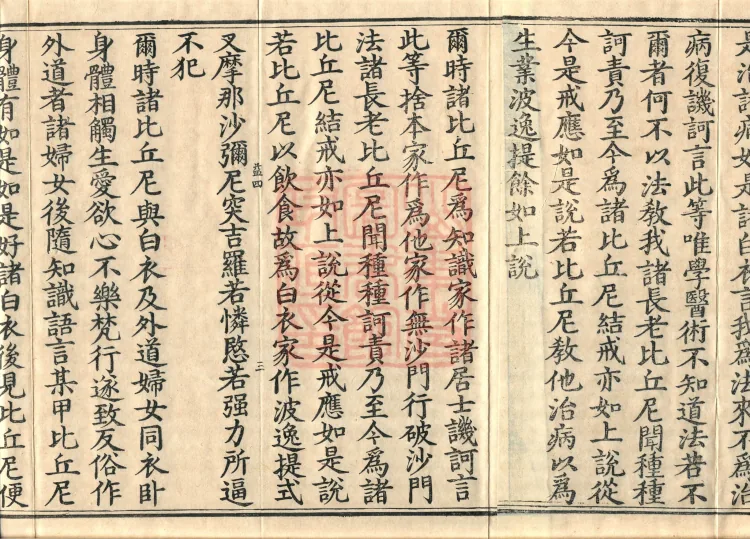 病如是語白衣言我爲法來不爲治
病復譏訶言此等唯學醫術不知道法若不
爾者何不以法教我諸長老比丘尼聞種種
訶責乃至今爲諸比丘尼結戒亦如上說從
今是戒應如是說若比丘尼教他治病以爲
生業波逸提餘如上說
爾時諸比丘尼爲知識家作諸居士譏訶言
此等捨本家作爲他家作無沙門行破沙門
法諸長老比丘尼聞種種訶責乃至今爲諸
比丘尼結戒亦如上說從今是戒應如是說
若比丘尼以飲食故爲白衣家作波逸提式
益四 三
叉摩那沙彌尼突吉羅若憐愍若强力所逼
不犯
爾時諸比丘尼與白衣及外道婦女同衣卧
身體相觸生愛欲心不樂梵行遂致反俗作
外道者諸婦女後隨知識語言某甲比丘尼
身體有如是如是好諸白衣後見比丘尼便